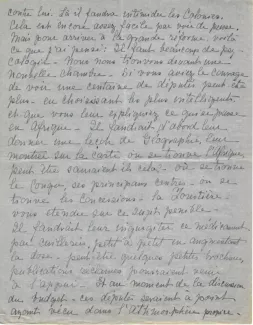 contre lui. Là il faudra intimider les Cabinets.
Cela est encore assez facile par voie de presse.
Mais pour arriver à la grande réforme, voilà
ce que j'ai pensé: Il faut beaucoup de psy-
chologie. Nous nous trouvons devant une
nouvelle chambre. Si vous avez le courage
de voir une centaine de députés peut être
plus - en choisissant les plus intelligents
et que vous leur expliquiez ce qui se passe
en Afrique. Il faudrait d'abord leur
donner une leçon de géographie, leur
montrer sur la carte où se trouve l'Afrique
peut être savent-ils cela - où se trouve
le Congo, ses principaux centres - où se
trouve les Concessions - la
vous étendre sur ce sujet pénible.
Il faudrait leur ce médicament
par cuillerée, petit à petit en augmentant
la dose - peut-être quelques petites brochures,
publications récentes pourraient venir
à l'appui. Et au moment de la discussion
du budget - ces députés seraient à point
ayant vécu dans l'athmosphère propre-